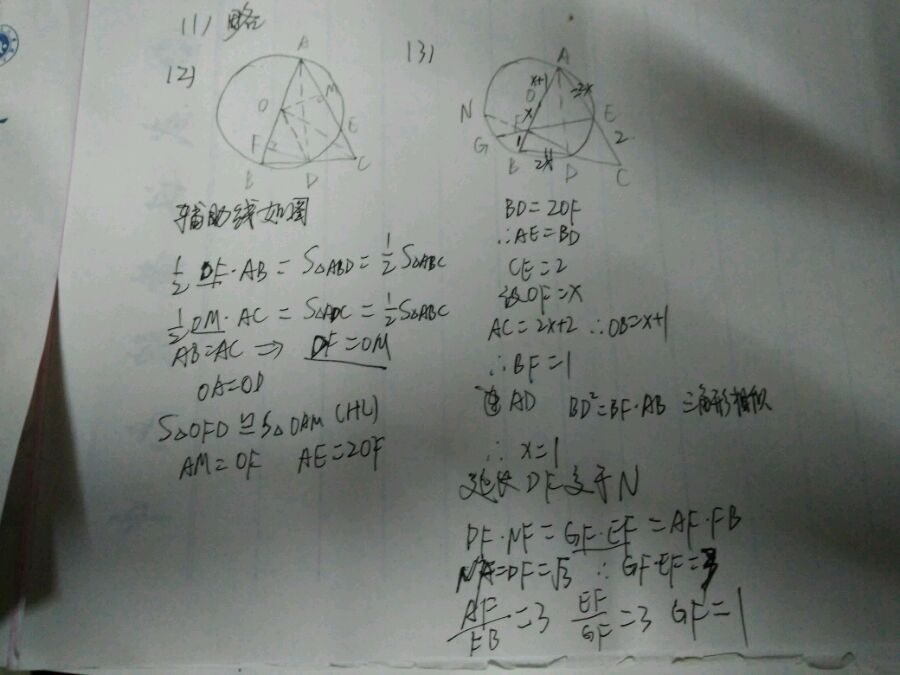 (1) 略
(2)
A
M
O
E
F
B
D
C
辅助线如图
1/2 DF·AB = S△ABD = 1/2 S△ABC
1/2 OM·AC = S△ADC = 1/2 S△ABC
AB=AC ⇒ DF=OM
OA=OD
S△OFD ≌ S△OAM (HL)
AM=OF AE=2OF
(3)
A
x+1
2x
O
N
x
E
F
G
1
2
B
2x
D
C
BD=2OF
∴AE=BD
CE=2
设OF=x
AC=2x+2 ∴OB=x+1
∴BF=1
连AD BD²=BF·AB 三角形相似
∴ x=1
延长DF交于N
DF·NF=GF·EF=AF·FB
NF=DF=√3 ∴ GF·EF=3
AF/FB=3 EF/GF=3 GF=1